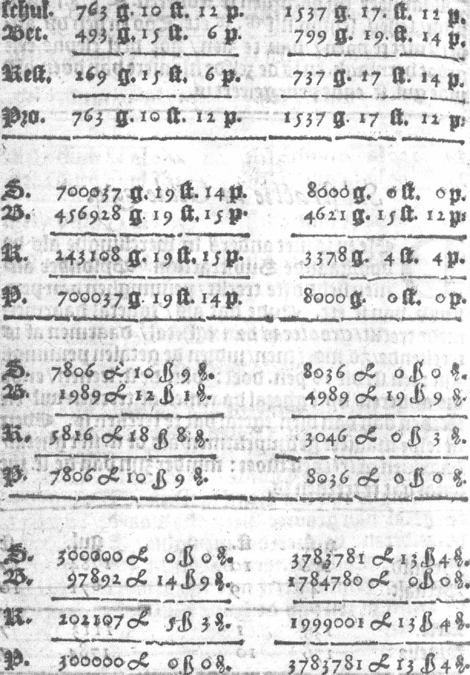 schul. 763 g. 10 st. 12 p. 1537 g. 17. st. 12 p.
Bet. 493, g. 15 st. 6 p. 799 g. 19. st. 14 p.
Rest. 269 g. 15 st. 6 p. 737 g. 17 st. 14 p.
Pro. 763 g. 10 st. 12 p. 1537 g. 17 st. 12 p.
S. 700037 g. 19 st. 14 p. 8000 g. 0 st. 0 p.
B. 456928 g. 19 st. 15 p. 4621 g. 15 st. 12 p.
R. 243108 g. 19 st. 15 p. 3378 g. 4 st. 4 p.
P. 700037 g. 19 st. 14 p. 8000 g. 0 st. 0 p.
S. 7806 £ 10 ß 9 ₰. 8036 £ 0 ß 0 ₰.
B. 1989 £, 12 ß 1 ₰. 4989 £ 19 ß 9 ₰.
R. 5816 £ 18 ß 8 ₰. 3046 £ 0 ß 3 ₰.
P. 7806 £ 10 ß 9 ₰. 8036 £ 0 ß 0 ₰.
S. 300000 £ 0 ß 0 ₰. 3783781 £ 13 ß 4 ₰.
B. 97892 £ 14 ß 9 ₰. 1784780 £ 0 ß 0 ₰.
R. 202107 £ 5 ß 3 ₰. 1999001 £ 13 ß 4 ₰.
P. 300000 £ 0 ß 0 ₰. 3783781 £ 13 ß 4 ₰.